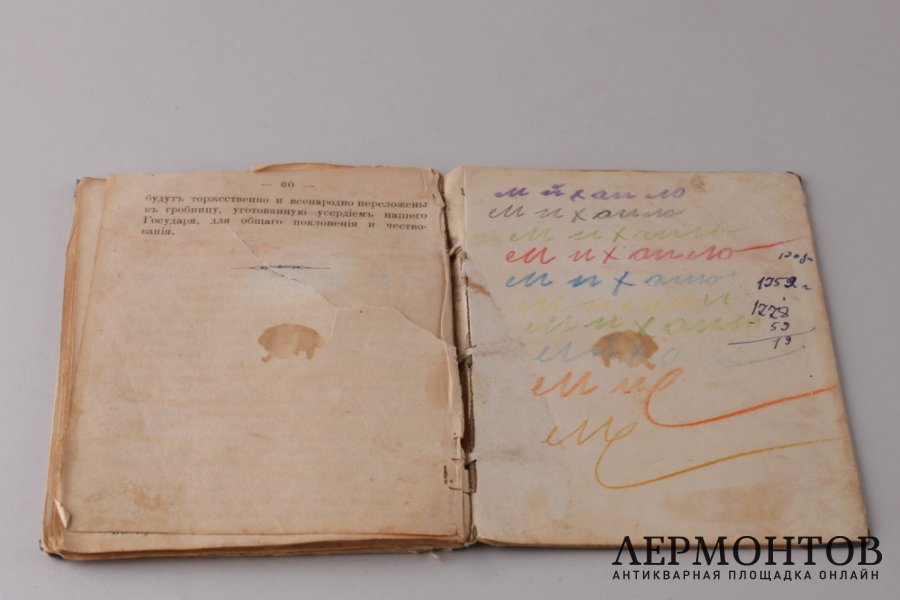 — 60 —
будутъ торжественно и всенародно переложены
въ гробницу, уготованную усердіемъ нашего
Государя, для общаго поклоненія и чество-
ванія.
михаило
михаило
михаило
михаило
михаило
михаил
михаил
миха
ми
м
1959 г
1778
59
19
ЛЕРМОНТОВ
АНТИКВАРНАЯ ПЛОЩАДКА ОНЛАЙН